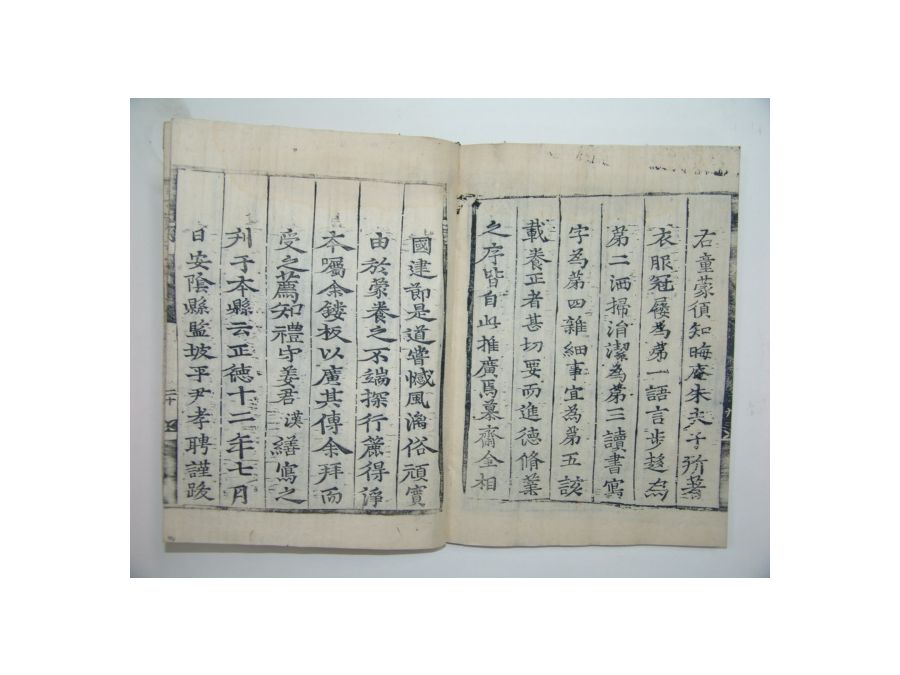 右童蒙須知晦庵朱夫子所著
衣服冠屨為第一語言步趍為
第二洒掃涓潔為第三讀書寫
字為第四雜細事宜為第五該
載養正者甚切要而進德脩業
之序皆自此推廣焉慕齋金相
國建節是道嘗慽風漓俗頑實
由於蒙養之不端採行篋得淨
本囑余鋟板以廣其傳余拜而
受之薦知禮守姜君漢繕寫之
刋于本縣云正德十二年七月
日安陰縣監坡平尹孝聘謹跋
二十